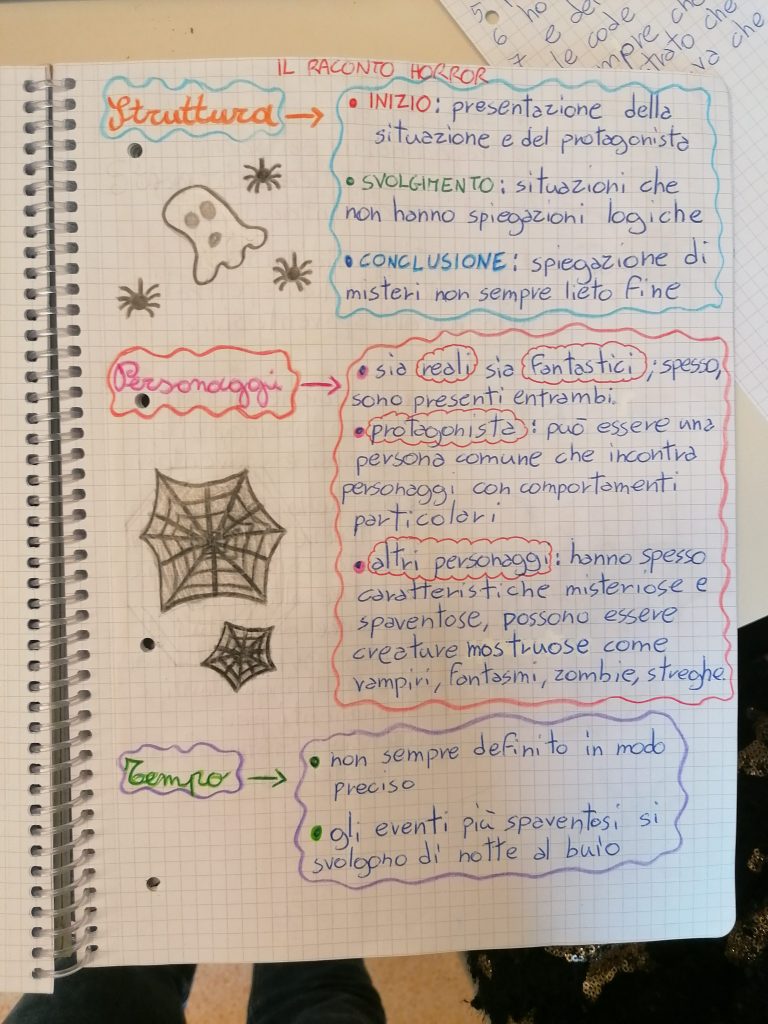 5
6 ho
7 e de
le code
mpre che
trato che
va che
IL RACONTO HORROR
Struttura →
• INIZIO: presentazione della
situazione e del protagonista
• SVOLGIMENTO: situazioni che
non hanno spiegazioni logiche
• CONCLUSIONE: spiegazione di
misteri non sempre lieto fine
Personaggi →
• sia reali sia fantastici; spesso,
sono presenti entrambi.
• protagonista: può essere una
persona comune che incontra
personaggi con comportamenti
particolari
• altri personaggi: hanno spesso
caratteristiche misteriose e
spaventose, possono essere
creature mostruose come
vampiri, fantasmi, zombie, streghe.
Tempo →
• non sempre definito in modo
preciso
• gli eventi più spaventosi si
svolgono di notte al buio